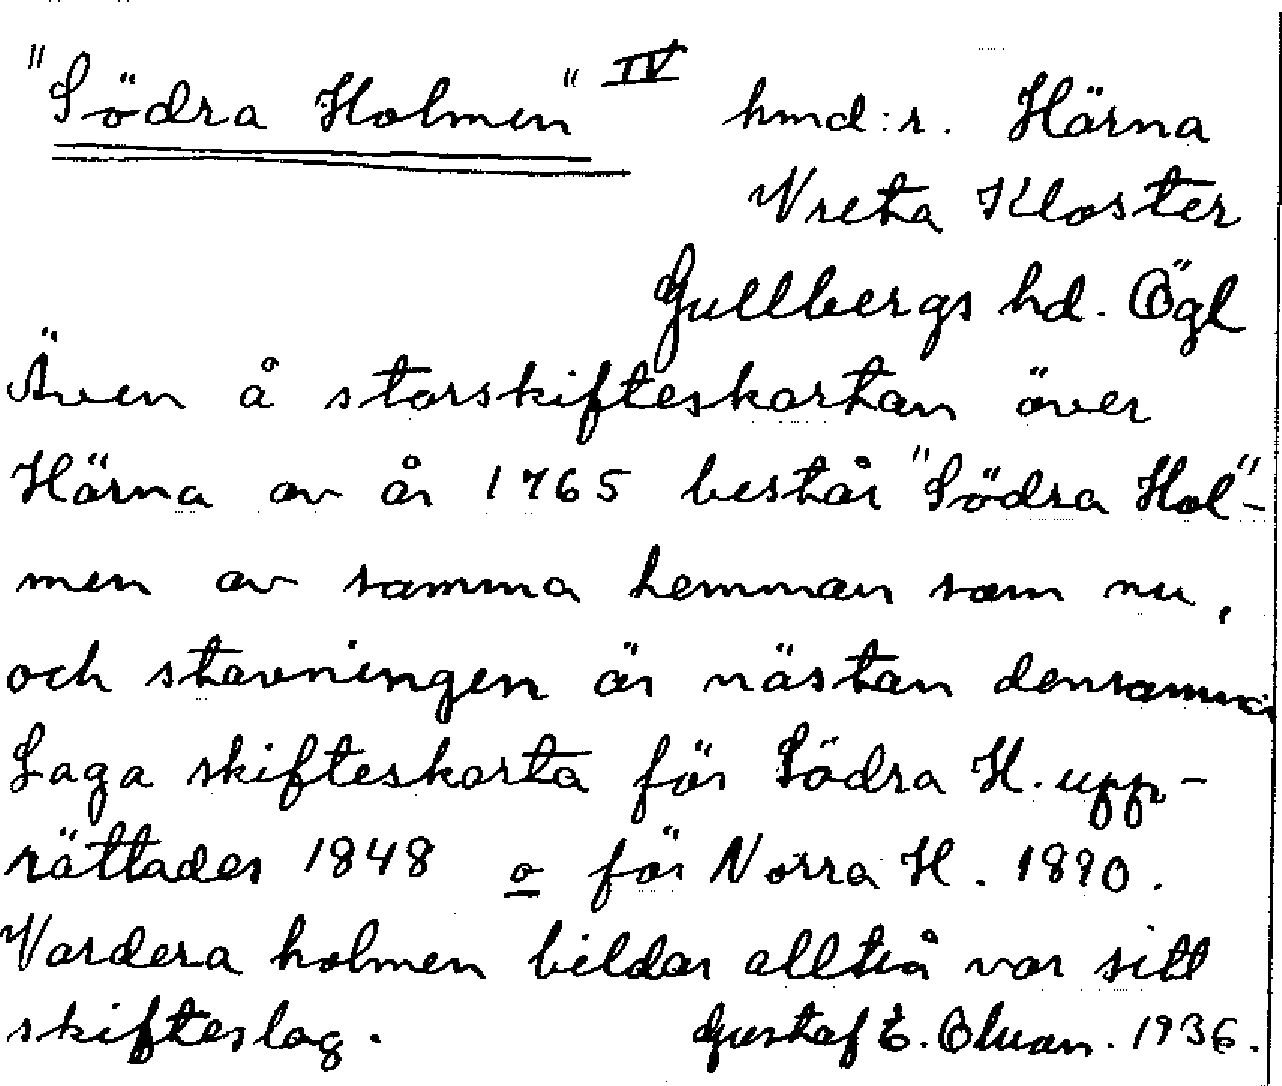 "Södra Holmen" IV hmd:r. Härna
Vreta Kloster
Gullbergs hd. Ögl
Även å storskifteskartan över
Härna av år 1765 består "Södra Hol"-
men av samma hemman som nu,
och stavningen är nästan densamma
Laga skifteskarta för Södra H. upp-
rättades 1848 o för Norra H. 1890.
Vardera holmen bildar alltså var sitt
skifteslag. Gustaf E. 1936.